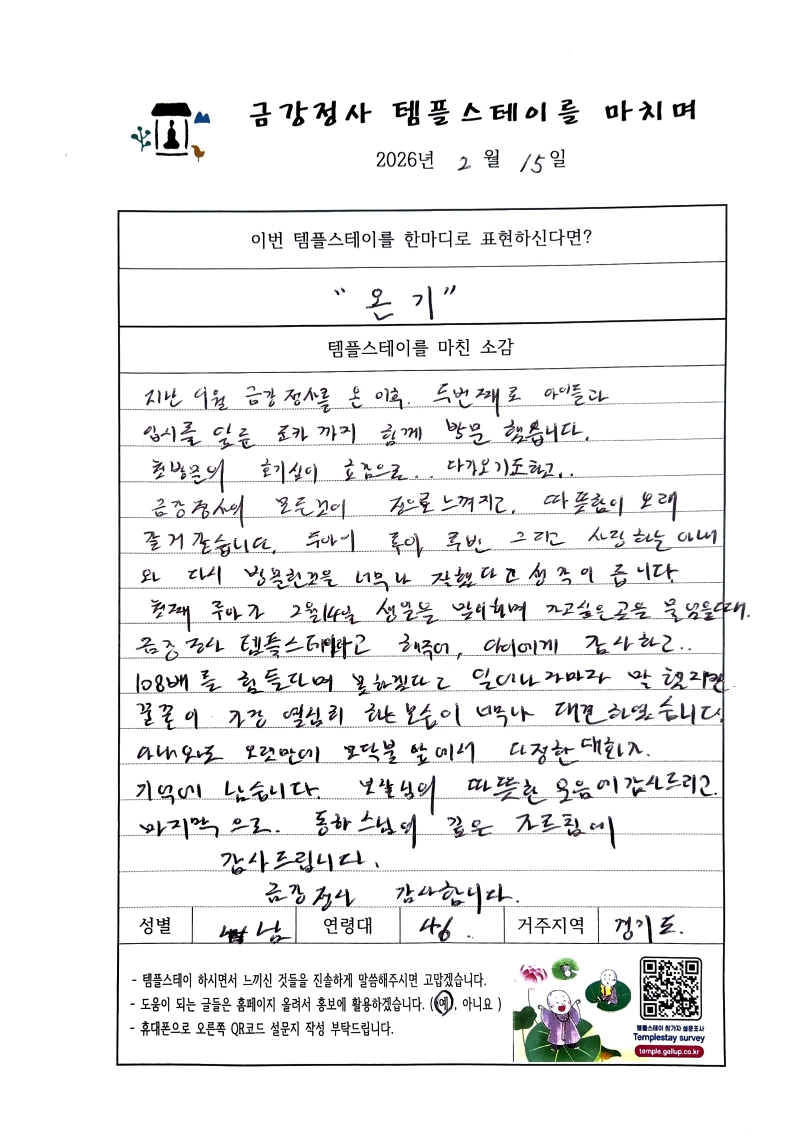 금강정사 템플스테이를 마치며
2026년 2월 15일
이번 템플스테이를 한마디로 표현하신다면?
"온기"
템플스테이를 마친 소감
지난 9월 금강정사를 온 이후, 두번째로 아이들과
입시를 앞둔 조카까지 함께 방문했습니다.
첫방문의 호기심이 호감으로.. 다가오기도하고..
금강정사의 모든것이 정으로느껴지고, 따뜻함이 오래
갈거같습니다. 루아이 루빈 그리고 사랑하는 아내
와 다시 방문한것을 너무나 잘했다고 생각이 듭니다.
첫째 루아가 2월14일 생일을 맞이하며 가고싶은곳을 물님을때.
금강정사 템플스테이라고 해주어, 아이에게 감사하고..
108배를 힘들다며 못하겠다고 일어나자마자 말했지만
꿋꿋이 가장 열심히 하는모습이 너무나 대견하였습니다.
아내와도 오랫만에 모닥불 앞에서 다정한 대화가.
기억에 남습니다. 보살님의 따뜻한 웃음에감사드리고.
마지막으로. 동하스님의 깊은 가르침에
감사드립니다.
금강정사 감사합니다.
성별 남 연령대 46. 거주지역 경기도.
- 템플스테이 하시면서 느끼신 것들을 진솔하게 말씀해주시면 고맙겠습니다.
- 도움이 되는 글들은 홈페이지 올려서 홍보에 활용하겠습니다. (예, 아니요)
- 휴대폰으로 오른쪽 QR코드 설문지 작성 부탁드립니다.
템플스테이 참가자 설문조사
Templestay survey
temple.gallup.co.kr